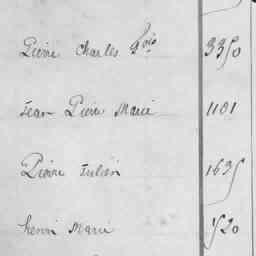 Pierre Charles Fois 3350
Jean Pierre Marie 1101
Pierre Julien 1635
henri Marie 1520